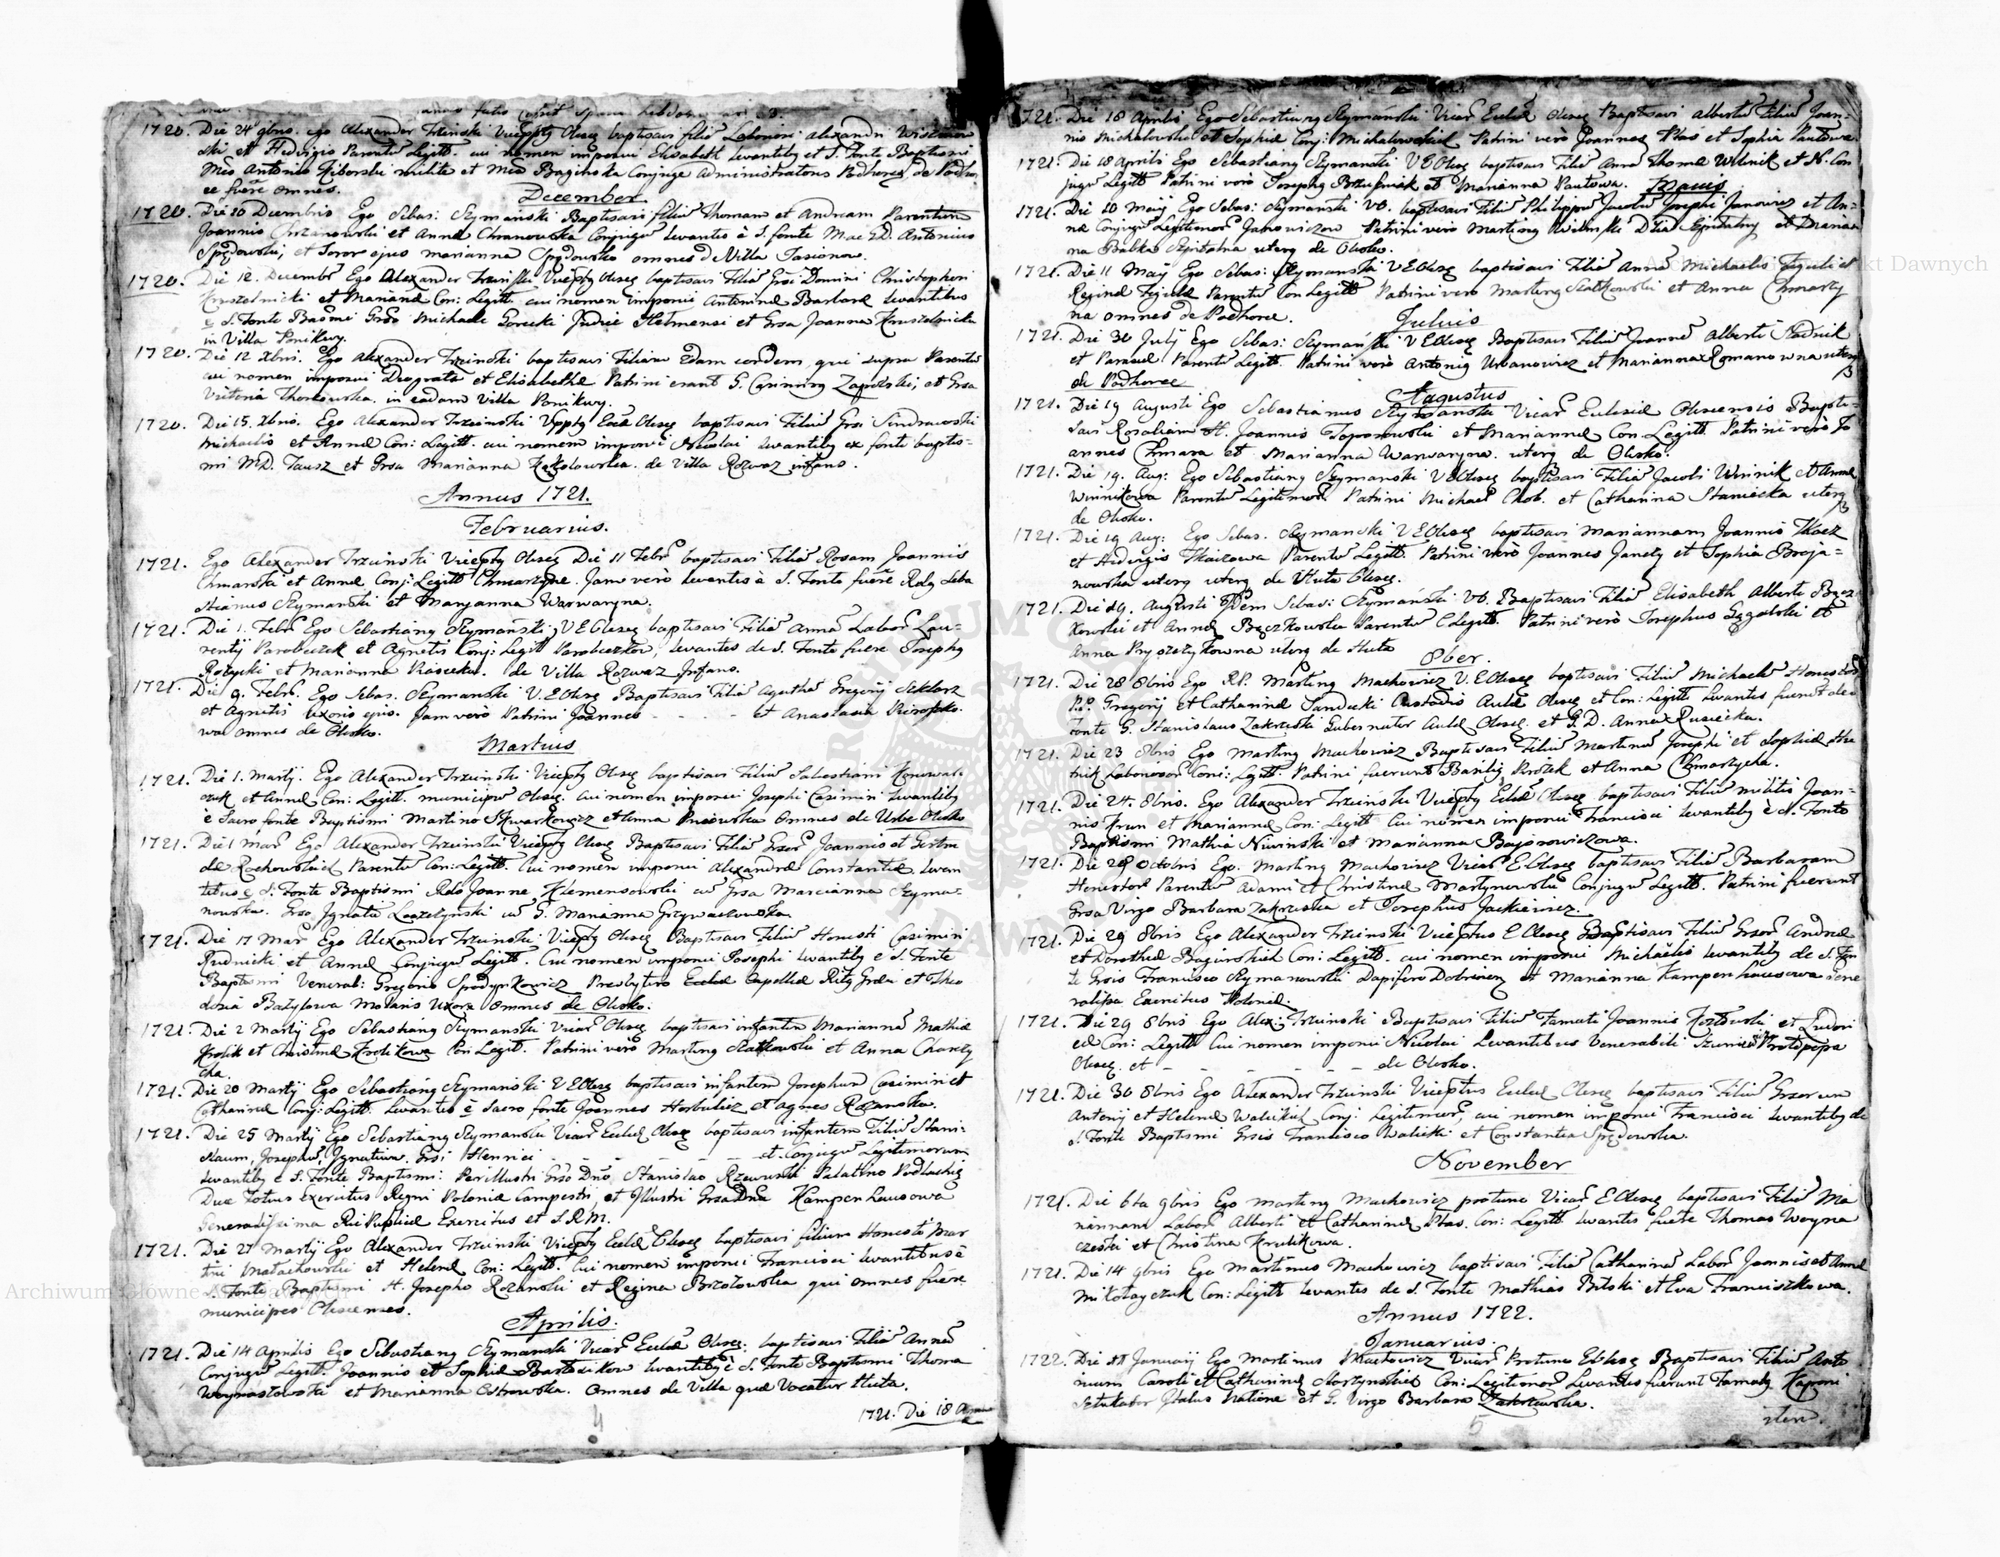 1720. Die 24 9bris. ego Alexander Trzciński Viceppty Olesc baptisavi filiã Laboriosi Alexandri
ski et Hedvigis Parentũ Legitt. cui nomen imposui Elisabeth levantiby et S. Fonte Baptismi
Mdo Antonio Kiborski milite et Mda Bagińska Conjuge Administratoris Podhorec de Podho
ce fuere omnes.
December
1720. Die 10 Decembris Ego Sebas: Szymański Baptisavi filiũ Thomam et Andream Parentum
Joannis Chrzanowski et Annæ Chranowska Conjugũ levantes è S. fonte Mag. D. Antonius
Spędowski, et Soror ejus Marianna Spędowska omnes d Villa Jasionow.
1720. Die 12. Decembr Ego Alexander Trzciński Viceppty Olesc baptisavi Filiã Grsi Domini Christophori
Kruszelnicki et Mariannæ Con: Legitt. cui nomen imposui Antoninæ Barbaræ levantibus
è S. Fonte Baptsmi Grso Michaele Gorecki Judice Helmensi et Grsa Joanna Kruszelnicka
in Villa Ponikwy.
1720. Die 12 Xbris. Ego Alexander Trzciński baptisavi Filiam Edam eorndem, qui supra Parentũ
cui nomen imposui Deograta et Elisabethæ Patrini erant G. Zagorski, et Grsa
Victoria Thorkowska. in eadam Villa Ponikwy.
1720. Die 15. Xbris. Ego Alexander Trzciński Vppty Eccl Olesc baptisavi Filiũ Grsi Sindrawski
Michaelis et Annæ Con: Legitt. cui nomen imposui Nicolai levantiby ex fonte baptis-
mi MD. Jausz et Grsa Marianna Kąkolowska. de Villa Rozwaz infano.
Annus 1721.
Februarius.
1721. Ego Alexander Trzciński Viceppty Olesc Die 11 Febr baptisavi Filiã Rosam Joannis
Chmarski et Annæ Conj: Legitt Chmarzyne. Jam verò levantes è S. Fonte fuere Rdy Seba
stianus Szymański et Maryanna Warwaryna.
1721. Die 1. Febr Ego Sebastiang Szymański, VEOlesc baptisavi Filiã Annã Labor Lau-
rentij Parobeczek et Agnetis Conj: Legitt Parobeczkow, levantes de S. Fonte fuere Josephg
Rozycki et Marianna Piasecka. de Villa Rozwaz Infano.
1721. Die 9. Febr. Ego Sebas. Szymanski V.EOlesc Baptisavi Filiã Agathã Gregorij Seklerz
et Agnetis Uxoris ejus. Jam verò Patrini Joannes - - - - et Anastasia
wa omnes de Olesko.
Martius
1721. Die 1. Martij. Ego Alexander Trzciński Viceppty Olesc baptisavi Filiũ Sabestiani Konowal-
czuk et Annæ Con: Legitt. municipũ Olesc. Cui nomen imposui Josephi Casimiri levantiby
è Sacro fonte Baptismi Martino Skwarkowicz et Anna Omnes de Urbe Olesko
1721. Die 1 Mar Ego Alexander Trzciński Viceppty Olesc Baptisavi Filiã Grsor Joannis et Gertru
dæ Rachowskich Parentũ Con: Legitt. Cui nomen imposui Alexandræ Constantiæ levan
tibus è S. Fonte Baptismi Rdo Joanne Klemensowski cũ Grsa Marcianna Szyma-
nowska. Grso Ignatio Loczetynski cũ G. Marianna Grzywaczowska.
1721. Die 17 Mar Ego Alexander Trzciński Viceppty Olesc Baptisavi Filiũ Honesti Casimiri
Rudnicki et Annæ Conjugũ Legitt. Cui nomen imposui Josephi levantiby è S. Fonte
Baptismi Venerab: Gregorio Spodynkowicz Presbytero Ecclæ Capellæ Ritg Græci et Theo
dozia Bazylowa Molaris Uxore omnes de Olesko.
1721. Die 2 Martij Ego Sebastiang Szymanski Vicar Olesc baptisavi infantem Mariannã Mathiæ
Krolik et Christinæ Krolikowa Con Legitt. Patrini verò Marting Szatkowski et Anna Charęty
cha.
1721. Die 20 Martij Ego Sebastiang Szymanski VEOlesc baptisavi infantem Josephum Casimiri et
Catharinæ Conj: Legitt. levantes è Sacro fonte Joannes Horbulicz et Agnes Rozanska.
1721. Die 25 Martij Ego Sebastiang Szymanski Vicar Eccl Olesc baptisavi infantem Filiũ Stani-
slaum, Josephũ, Ignatium, Grsi Henrici - - - - et Conjugũ Legitimorum
levantiby è S. Fonte Baptismi: Perillustri Grso Dno Stanislao Rzewuski Palatino Podlachig
Duce Totius Exercitus Regni Poloniæ Campestri, et Illustri Grsa Dna Kampenhausowa
Generalissima Rei Publicæ Exercitus et S.R.M.
1721. Die 27 Martij Ego Alexander Trzciński Viceppty Eccl Olesc baptisavi filium Honesti Mar
tini Matachowski et Helenæ Con: Legitt. Cui nomen imposui Francisci levantibus è
S. Fonte Baptismi H. Josepho Rozanski et Regina Brzozowska qui omnes fuere
municipes Olescenses.
Aprilis.
1721. Die 14 Aprilis Ego Sebastiang Szymanski Vicar Eccl Olesc. baptisavi Filiã Annã
Conjugũ Legitt. Joannis et Sophiæ Bartosikow levantiby è S. Fonte Baptismi Thoma
Woynastowski et Marianna Ostrowska. Omnes de Villa quæ Vocatur Huta.
1721. Die 18 Apri
4
1721. Die 18 Aprilis Ego Sebastiang Szymański Vicar Eccl Olesc Baptisavi Albertũ Filiũ Joan-
nis Michalowski et Sophiæ Conj: Michalowskich Patrini verò Joannes Ptas et Sophia Pautowa
1721. Die 18 Aprilis Ego Sebastiang Szymanski VEOlesc baptisavi Filiã Annã Thomæ Wolnik et N. Con
jugũ Legitt Patrini verò Josephg et Marianna Pautowa. Maius
1721. Die 10 Maij Ego Sebas: Szymanski VO. baptisavi Filiũ Philippũ Jacobũ Josephi Janowicz et An-
næ Conjugũ Legitimor Janowiczow Patrini verò Marting Kiliński Dziad Szpitalny et Marian
na Babka Szpitalna uterq de Olesko.
1721. Die 11 Maij Ego Sebas: Szymanski VEOlesc baptisavi Filiã Annã Michaelis Figula et
Reginæ Figulæ Parentũ Con Legitt Patrini vero Marting Szatkowski et Anna Chmarzy
na omnes de Podhorce.
Julius
1721. Die 30 Julij Ego Sebas: Szymański VEOlesc Baptisavi Filiũ Joannẽ Alberti Stadnik
et Parentũ Legitt. Patrini verò Antonig Urbanowicz et Marianna Romanowna uterq
de Podhorce
Augustus
1721. Die 19 Augusti Ego Sebastianus Szymanski Vicar Ecclesiæ Olescensis Bapti-
savi Rosaliam H. Joannis Toporowski et Mariannæ Con Legitt Patrini verò Jo
annes Chmara et Marianna Warwaryna. uterq de Olesko.
1721. Die 19. Aug: Ego Sebastiang Szymanski VEOlesc baptisavi Filiã Jacobi Winnik et Annæ
Winnikowa Parentũ Legitimor Patrini Michael Chob. et Catharina Staniecka uterq
de Olesko.
1721. Die 19 Aug: Ego Sebas. Szymanski VEOlesc baptisavi Mariannam Joannis Tkacz
et Hedvigis Tkaczowa Parentũ Legitt. Patrini verò Joannes Janety et Sophia Broja-
nowska uterq uterq de Huta Olesc.
1721. Die 29. Augusti Idem Sebas: Szymański VO. Baptisavi Filiã Elisabeth Alberti Bącz
kowski et Annæ Bączkowska Parentũ Legitt. Patrini verò Josephus et
Anna Pryszczykowna uterq de Huta
8ber.
1721. Die 28 8bris Ego R.P. Marting Machowicz V.EOlesc baptisavi Filiũ Michaelẽ Honestor
P.P. Gregorij et Catharinæ Sandecki Custodis Aulæ Olesc et Con: Legitt Levantes fuerut de S
Fonte G. Stanislaus Zakrzeski Gubernator Aulæ Olesc. et G.D. Anna Rusiecka.
1721. Die 23 8bris Ego Marting Machowicz Baptisavi Filiũ Martinũ Josephi et Sophiæ
Laboriosor Coni: Legitt. Patrini fuerunt Basilig Krolek et Anna Chmarzycha.
1721. Die 24. 8bris. Ego Alexander Trzciński Viceppty Eccl Olesc baptisavi Filiũ militis Joan-
nis Krun et Mariannæ Con: Legitt Cui nomen imposui Francisci levantiby è S. Fonte
Baptismi Mathia Niwinski et Marianna Bajorowiczowa.
1721. Die 28 Octobris Ego. Marting Machowicz Vicar EOlesc baptisavi Filiã Barbaram
Honestor Parentũ Adami et Christinæ Martynowski Conjugũ Legitt. Patrini fuerunt
Grsa Virgo Barbara Zakrzeska et Josephus Jackiewicz.
1721. Die 29 8bris Ego Alexander Trzciński Viceptus EOlesc Baptisavi Filiũ Grsor Andreæ
et Dorotheæ Bagińskich Con: Legitt. cui nomen imposui Michaelis levantiby de S. Fon
te Grsis Francisco Szymanowski Dapifero Dobrinen et Marianna Kampenhausowa Gene
ralissa Exercitus Poloniæ.
1721. Die 29 8bris Ego Alex: Trzciński Baptisavi Filiũ Famati Joannis Kozłowski et Ludovi
cæ Con: Legitt Cui nomen imposui Nicolai Levantibus Venerabili Protopopa
Olesc. et - - - - - - - de Olesko.
1721. Die 30 8bris Ego Alexander Trzciński Viceptus Eccl Olesc baptisavi Filiũ Grsorum
Antonij et Helenæ Walickich Conj: Legitimor, cui nomen imposui Francisci levantiby de
S. Fonte Baptismi Grsis Francisco Walicki et Constantia Spędowska.
November
1721. Die 6ta 9bris Ego Marting Machowicz protunc Vicar EOlesc baptisavi Filiã Ma
riannam Labor Alberti et Catharinæ Ptas. Con: Legitt levantes fuere Thomas Woyna
czeski et Christina Krulikowa.
1721. Die 14 9bris Ego Martinus Machowicz baptisavi Filiã Catharinã Labor Joannis et Annæ
Mikołayczuk Con: Legitt levantes de S. Fonte Mathias Bilski et Eva Franciszkowa.
Annus 1722.
Januarius.
1722. Die 11 Januarij Ego Martinus Machowicz Vicar Protunc EOlesc Baptisavi Filiũ Anto
nium Caroli et Catharinæ Con: Legitimor Levantes fuerunt Famaty Kaponi
Italus Natione et G. Virgo Barbara Zakrzewska.
item.
5
Archiwum Główne Akt Dawnych